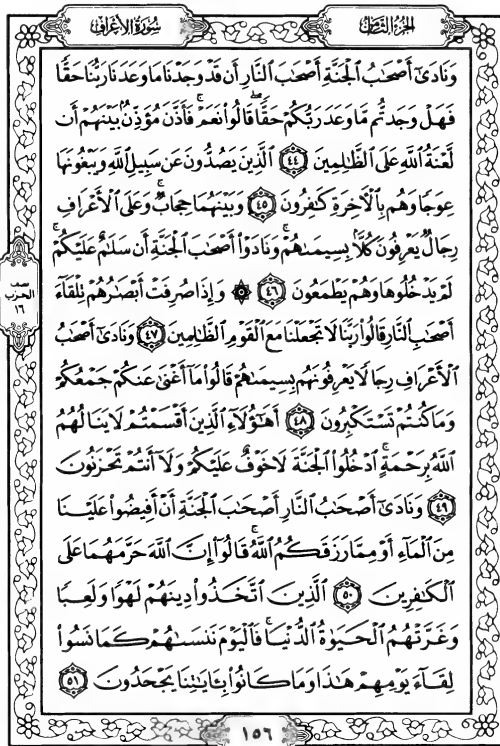 سورة الأعراف
الجزء الثامن
وَنَادَىٰٓ أَصْحَٰبُ ٱلْجَنَّةِ أَصْحَٰبَ ٱلنَّارِ أَن قَدْ وَجَدْنَا مَا وَعَدَنَا رَبُّنَا حَقًّا
فَهَلْ وَجَدتُّم مَّا وَعَدَ رَبُّكُمْ حَقًّا ۖ قَالُوا۟ نَعَمْ ۚ فَأَذَّنَ مُؤَذِّنٌۢ بَيْنَهُمْ أَن
لَّعْنَةُ ٱللَّهِ عَلَى ٱلظَّٰلِمِينَ ٤٤ ٱلَّذِينَ يَصُدُّونَ عَن سَبِيلِ ٱللَّهِ وَيَبْغُونَهَا
عِوَجًا وَهُم بِٱلْءَاخِرَةِ كَٰفِرُونَ ٤٥ وَبَيْنَهُمَا حِجَابٌ ۚ وَعَلَى ٱلْأَعْرَافِ
رِجَالٌ يَعْرِفُونَ كُلًّۢا بِسِيمَىٰهُمْ ۚ وَنَادَوْا۟ أَصْحَٰبَ ٱلْجَنَّةِ أَن سَلَٰمٌ عَلَيْكُمْ ۚ
لَمْ يَدْخُلُوهَا وَهُمْ يَطْمَعُونَ ٤٦ ۞ وَإِذَا صُرِفَتْ أَبْصَٰرُهُمْ تِلْقَآءَ
أَصْحَٰبِ ٱلنَّارِ قَالُوا۟ رَبَّنَا لَا تَجْعَلْنَا مَعَ ٱلْقَوْمِ ٱلظَّٰلِمِينَ ٤٧ وَنَادَىٰٓ أَصْحَٰبُ
ٱلْأَعْرَافِ رِجَالًا يَعْرِفُونَهُم بِسِيمَىٰهُمْ قَالُوا۟ مَآ أَغْنَىٰ عَنكُمْ جَمْعُكُمْ
وَمَا كُنتُمْ تَسْتَكْبِرُونَ ٤٨ أَهَٰٓؤُلَآءِ ٱلَّذِينَ أَقْسَمْتُمْ لَا يَنَالُهُمُ
ٱللَّهُ بِرَحْمَةٍ ۚ ٱدْخُلُوا۟ ٱلْجَنَّةَ لَا خَوْفٌ عَلَيْكُمْ وَلَآ أَنتُمْ تَحْزَنُونَ
٤٩ وَنَادَىٰٓ أَصْحَٰبُ ٱلنَّارِ أَصْحَٰبَ ٱلْجَنَّةِ أَنْ أَفِيضُوا۟ عَلَيْنَا
مِنَ ٱلْمَآءِ أَوْ مِمَّا رَزَقَكُمُ ٱللَّهُ ۚ قَالُوٓا۟ إِنَّ ٱللَّهَ حَرَّمَهُمَا عَلَى
ٱلْكَٰفِرِينَ ٥٠ ٱلَّذِينَ ٱتَّخَذُوا۟ دِينَهُمْ لَهْوًا وَلَعِبًا
وَغَرَّتْهُمُ ٱلْحَيَوٰةُ ٱلدُّنْيَا ۚ فَٱلْيَوْمَ نَنسَىٰهُمْ كَمَا نَسُوا۟
لِقَآءَ يَوْمِهِمْ هَٰذَا وَمَا كَانُوا۟ بِـَٔايَٰتِنَا يَجْحَدُونَ ٥١
نصف
الحزب
١٦
١٥٦